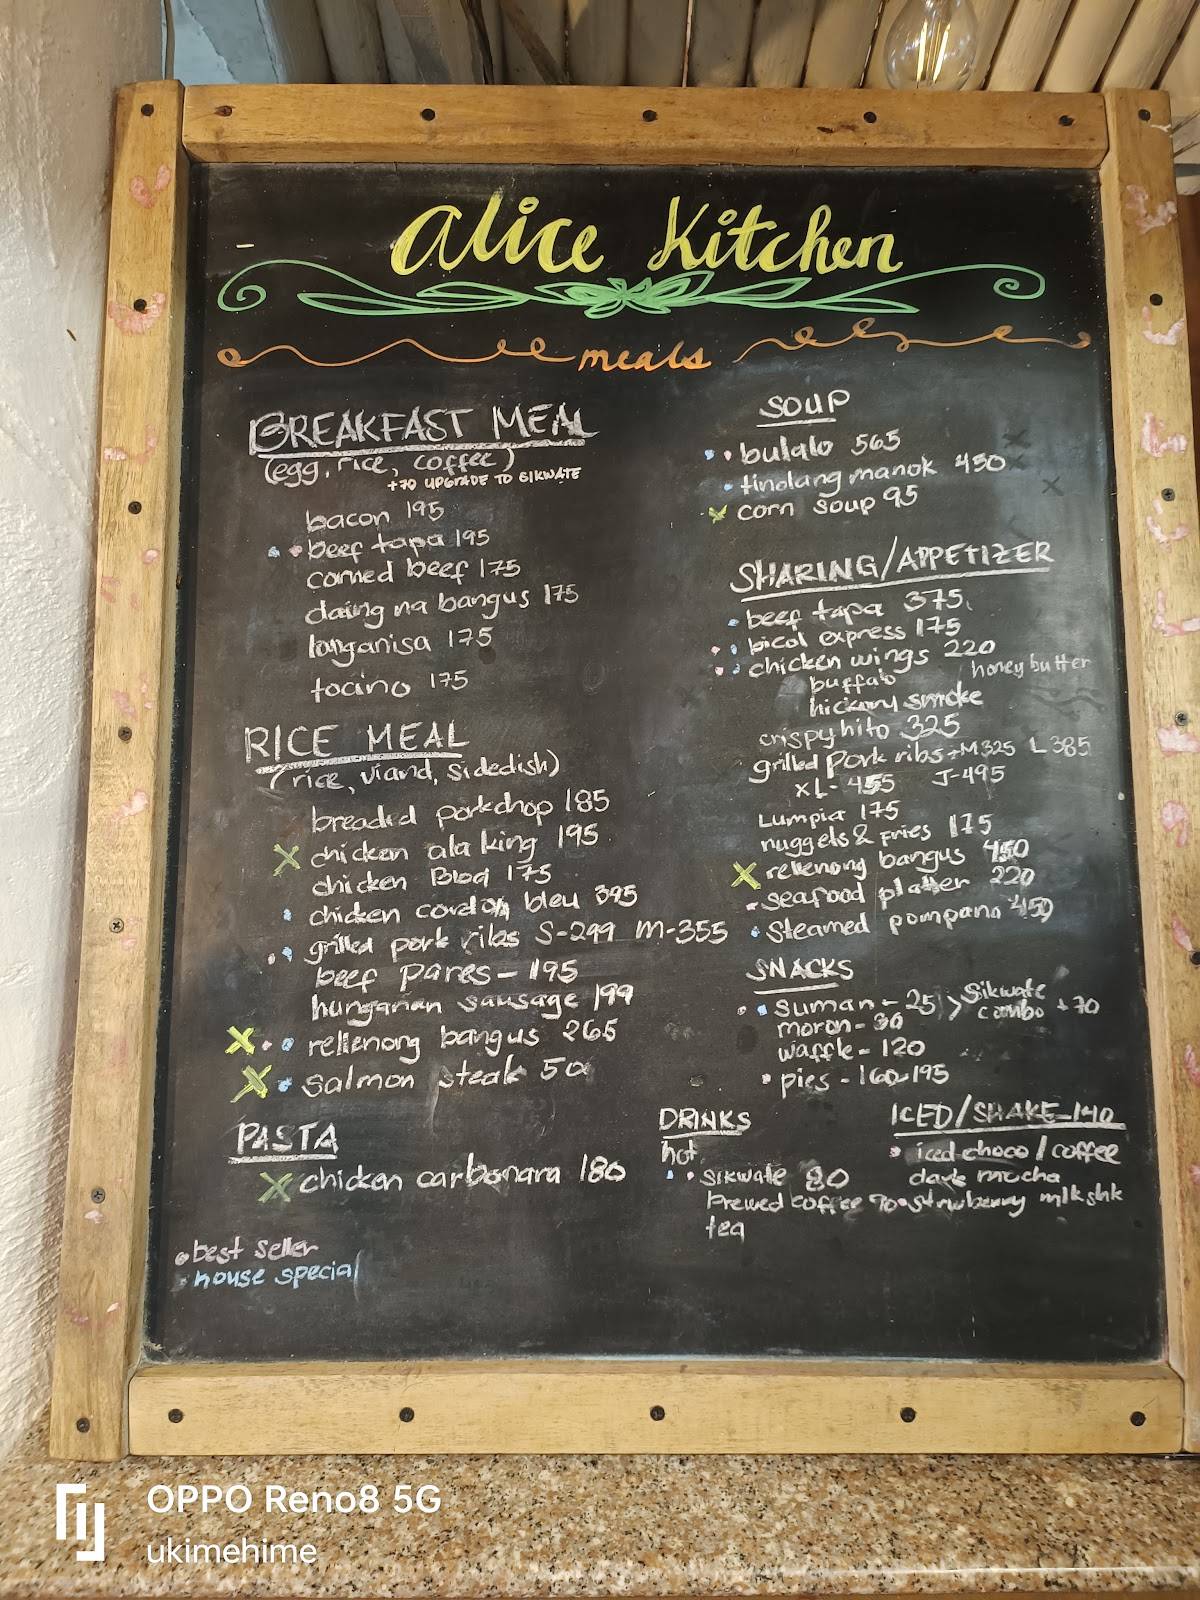 alice Kitchen
meals
BREAKFAST MEAL
(egg, rice, coffee)
+70 UPGRADE TO SIKWATE
bacon 195
beef tapa 195
corned beef 175
daing na bangus 175
longanisa 175
tocino 175
RICE MEAL
(rice, viand, sidedish)
breaded porkchop 185
chicken ala king 195
chicken BBQ 175
chicken cordon bleu 395
grilled pork ribs S-299 M-355
beef pares - 195
hungarian sausage 199
rellenong bangus 265
salmon steak 50
PASTA
chicken carbonara 180
best seller
house special
SOUP
bulalo 565
tinolang manok 450
corn soup 95
SHARING/APPETIZER
beef tapa 375
bicol express 175
chicken wings 220
buffalo honey butter
hickory smoke
crispy hito 325
grilled pork ribs - M325 L385
XL- 455 J-495
Lumpia 175
nuggets & fries 175
rellenong bangus 450
seafood platter 220
steamed pompano 450
SNACKS
suman - 25 > Sikwate
moron - 30 combo +70
waffle - 120
pies - 160-195
DRINKS
hot
sikwate 80
brewed coffee 70
tea
ICED/SHAKE 140
iced choco / coffee
dark mocha
strawberry mlkshk
OPPO Reno8 5G
ukimehime